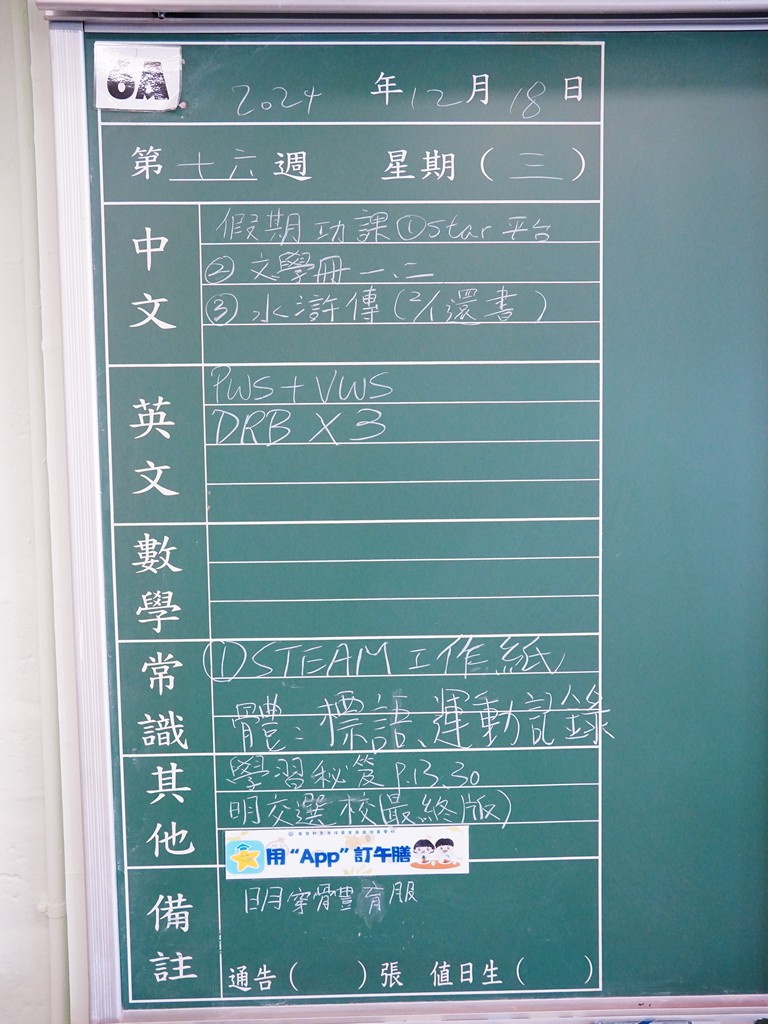 6A
2024 年 12 月 18 日
第 十六 週 星期 ( 三 )
中文
假期功課 ① star 平台
② 文學冊 一、二
③ 水滸傳 (2/1 還書)
英文
PWS + VWS
DRB X 3
數學
常識
① STEAM 工作紙
體：標語、運動記錄
其他
學習秘笈 P.13,30
明交選校(最終版)
用“App”訂午膳
備註
明穿體育服
通告 ( ) 張 值日生 ( )